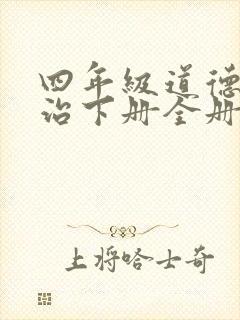 四年级道德
治下册全册
上将哈士奇